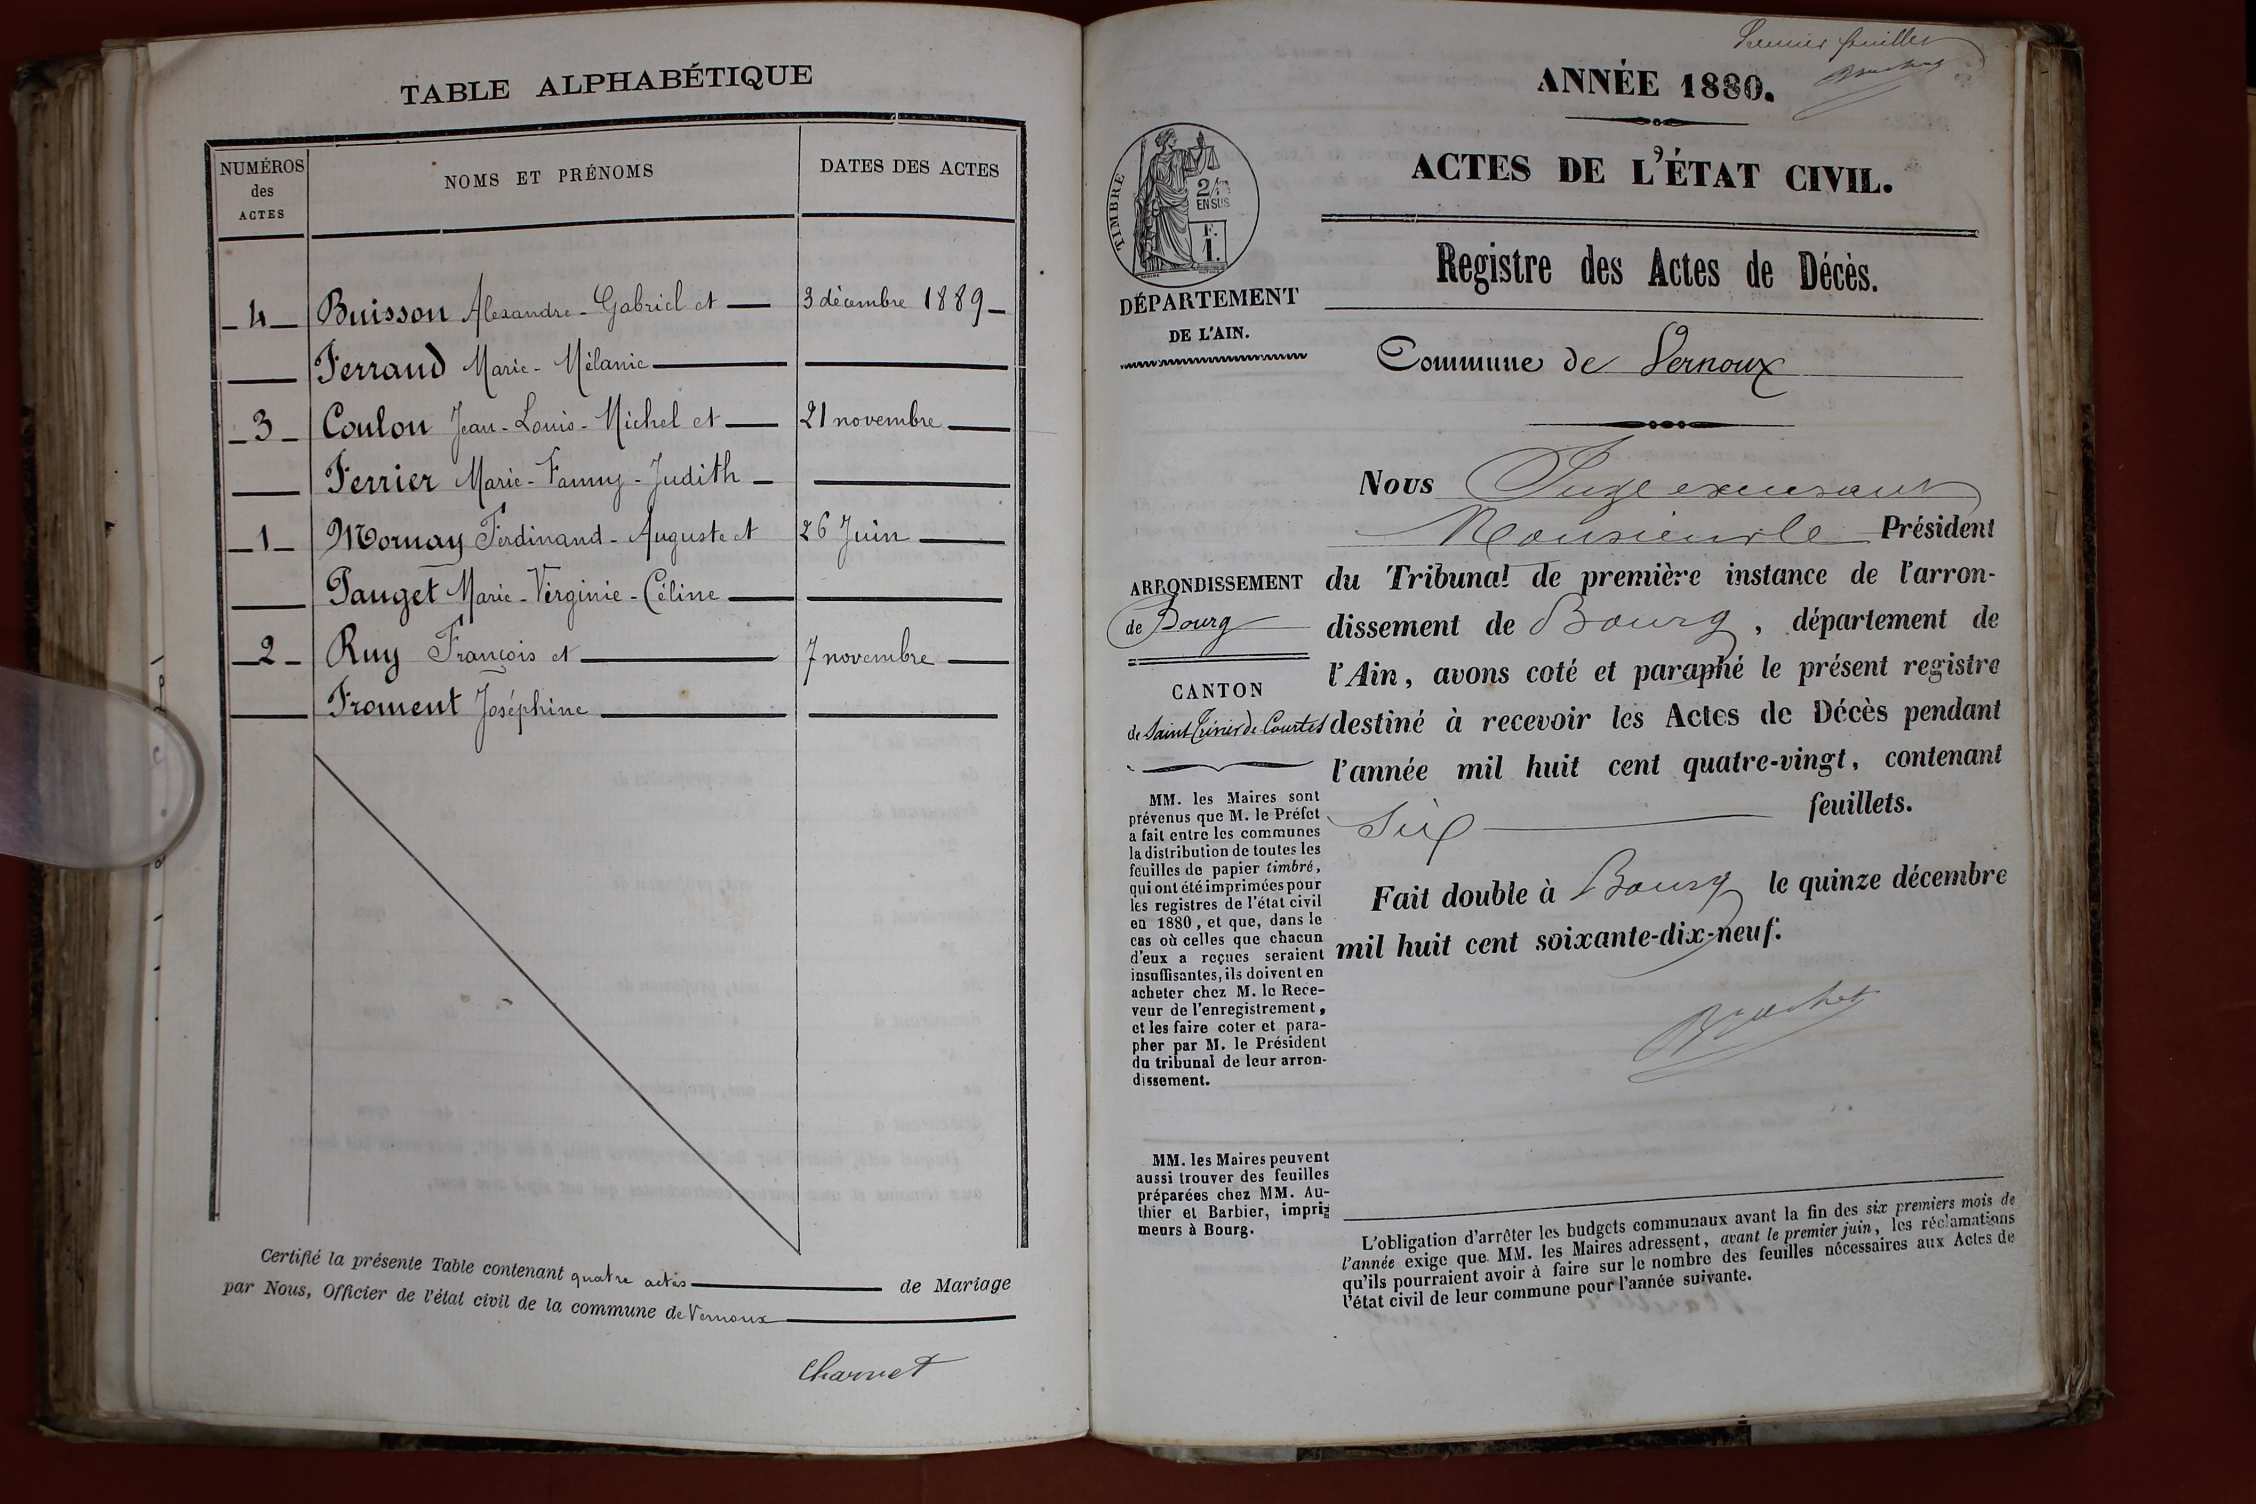 TABLE ALPHABÉTIQUE
NUMÉROS
des
ACTES
NOMS ET PRÉNOMS
DATES DES ACTES
4 Buisson Alexandre-Gabriel et 3 décembre 1889
Ferraud Marie-Mélanie
3 Coulon Jean-Louis-Michel et 21 novembre
Ferrier Marie-Fanny-Judith
1 Mornay Ferdinand-Auguste et 26 Juin
Pauget Marie-Virginie-Céline
2 Ruy François et 7 novembre
Froment Joséphine
Certifié la présente Table contenant quatre actes de Mariage
par Nous, Officier de l'état civil de la commune de Vernoux
Charvet
Premier feuillet
ANNÉE 1880.
ACTES DE L'ÉTAT CIVIL.
Registre des Actes de Décès.
TIMBRE
2/10
EN SUS
F.
1.
DÉPARTEMENT
DE L'AIN.
Commune de Vernoux
Nous Juge
Monsieur le Président
du Tribunal de première instance de l'arron-
dissement de Bourg, département de
l'Ain, avons coté et paraphé le présent registre
destiné à recevoir les Actes de Décès pendant
l'année mil huit cent quatre-vingt, contenant
Six feuillets.
Fait double à Bourg le quinze décembre
mil huit cent soixante-dix-neuf.
ARRONDISSEMENT
de Bourg
CANTON
de Saint Trivier de Courtes
MM. les Maires sont
prévenus que M. le Préfet
a fait entre les communes
la distribution de toutes les
feuilles de papier timbré,
qui ont été imprimées pour
les registres de l'état civil
en 1880, et que, dans le
cas où celles que chacun
d'eux a reçues seraient
insuffisantes, ils doivent en
acheter chez M. le Rece-
veur de l'enregistrement,
et les faire coter et para-
pher par M. le Président
du tribunal de leur arron-
dissement.
MM. les Maires peuvent
aussi trouver des feuilles
préparées chez MM. Au-
thier et Barbier, impri-
meurs à Bourg.
L'obligation d'arrêter les budgets communaux avant la fin des six premiers mois de
l'année exige que MM. les Maires adressent, avant le premier juin, les réclamations
qu'ils pourraient avoir à faire sur le nombre des feuilles nécessaires aux Actes de
l'état civil de leur commune pour l'année suivante.